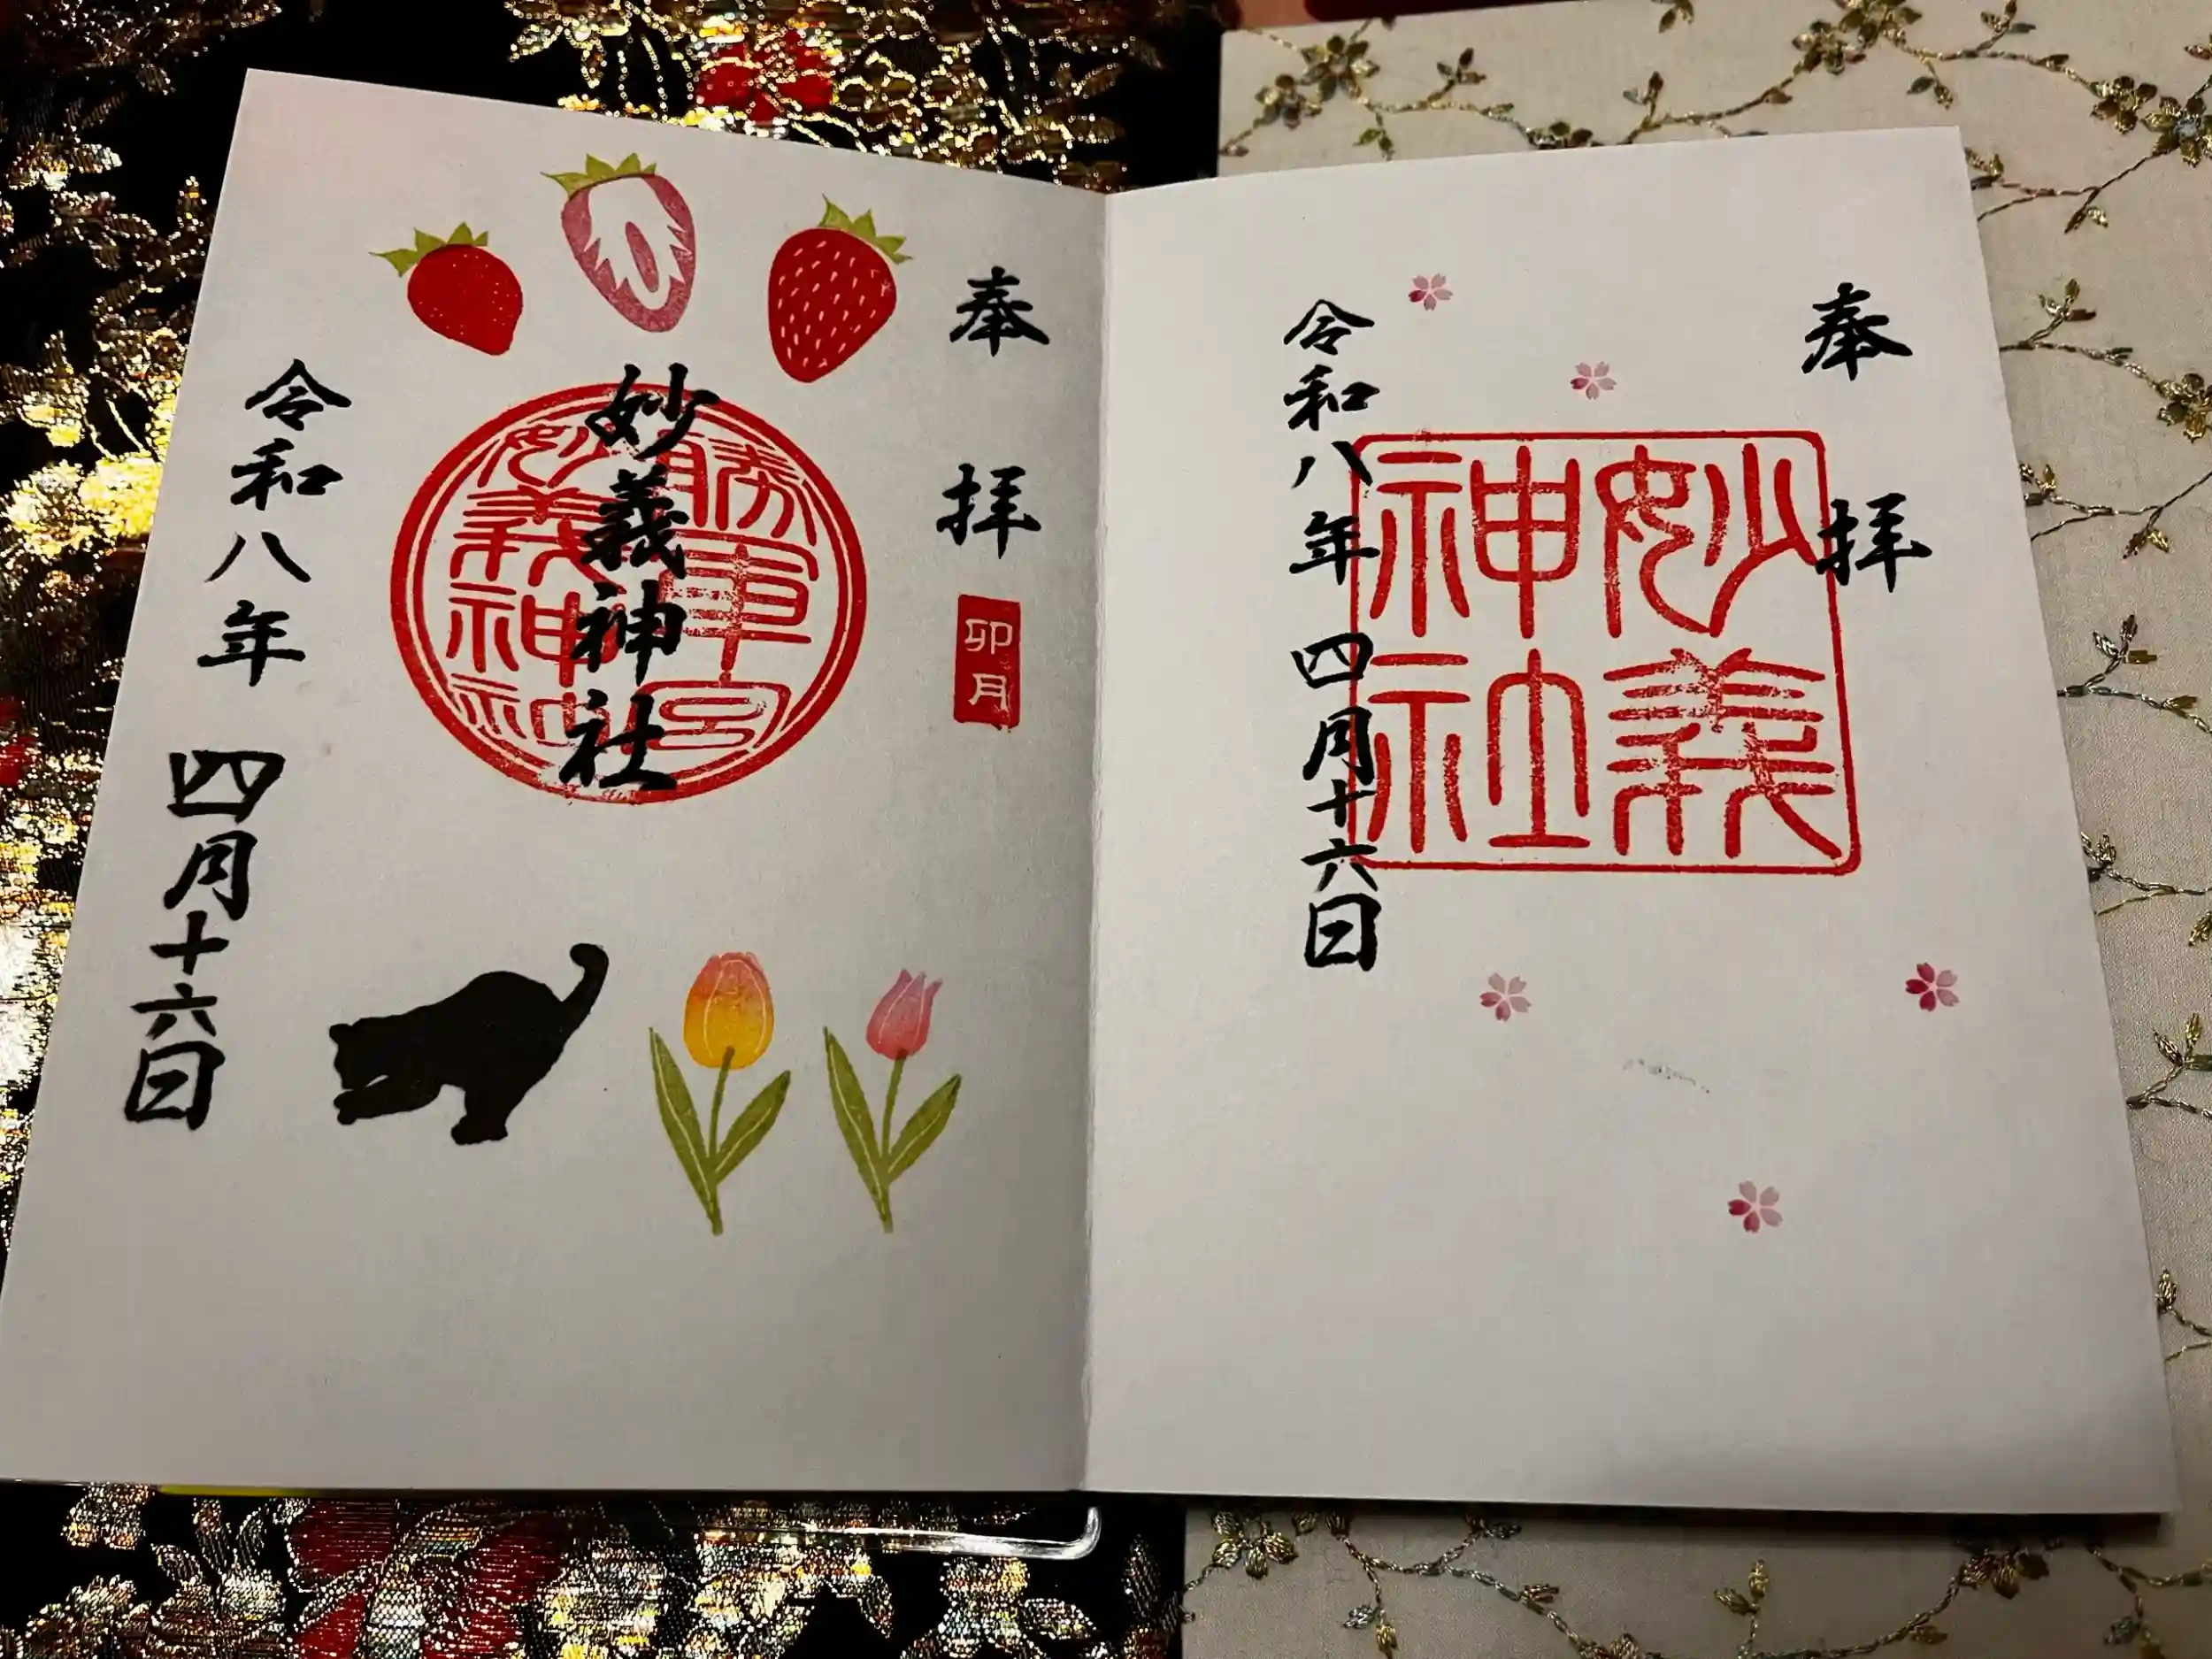 奉拝
妙義神社
令和八年四月十六日
奉拝
卯月
妙義神社
勝軍宮
妙義神社
令和八年四月十六日